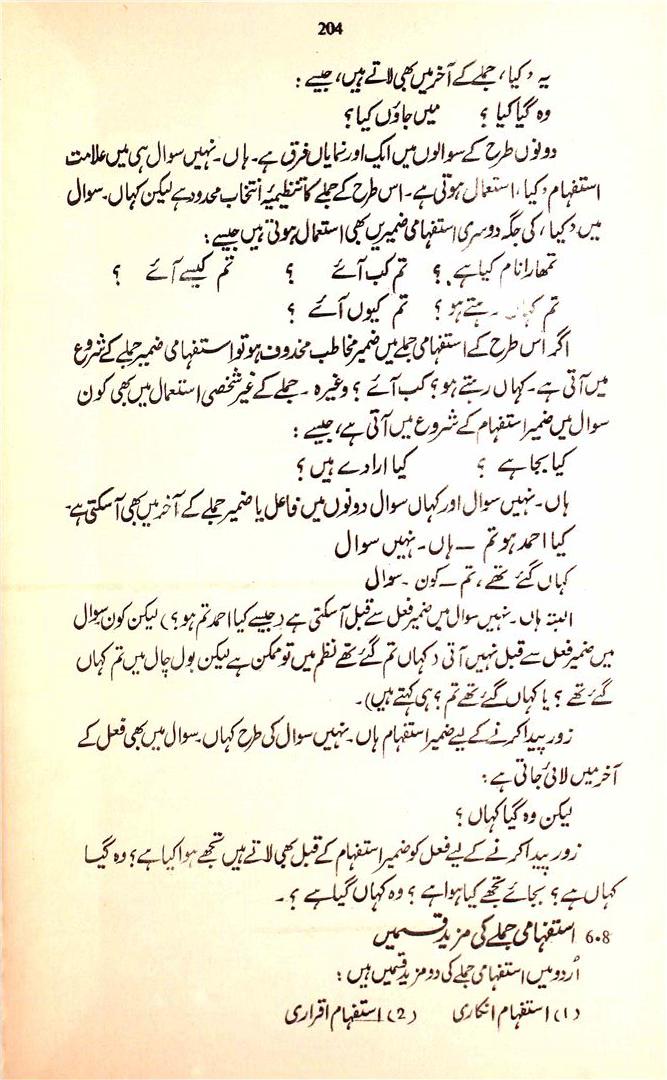 204
یہ ’کیا‘ جملے کے آخر میں بھی لاتے ہیں، جیسے :
وہ گیا کیا ؟ میں جاؤں کیا؟
دونوں طرح کے سوالوں میں ایک اور نمایاں فرق ہے۔ ہاں۔ نہیں سوال ہی میں علامت
استفہام ’کیا‘ استعمال ہوتی ہے۔ اس طرح کے جملے کا تنظیمیہ انتخاب محدود ہے لیکن کہاں۔ سوال
میں ’کیا‘ کی جگہ دوسری استفہامی ضمیریں بھی استعمال ہوتی ہیں جیسے :
تمھارا نام کیا ہے ؟ تم کب آئے ؟ تم کیسے آئے ؟
تم کہاں رہتے ہو ؟ تم کیوں آئے ؟
اگر اس طرح کے استفہامی جملے میں ضمیر مخاطب محذوف ہو تو استفہامی ضمیر جملے کے شروع
میں آتی ہے۔ کہاں رہتے ہو ؟ کب آئے ؟ وغیرہ ۔ جملے کے غیر شخصی استعمال میں بھی کون
سوال میں ضمیر استفہام کے شروع میں آتی ہے، جیسے :
کیا بجا ہے ؟ کیا ارادے ہیں ؟
ہاں۔ نہیں سوال اور کہاں سوال دونوں میں فاعل یا ضمیر جملے کے آخر میں بھی آ سکتی ہے۔
کیا احمد ہو تم — ہاں۔ نہیں سوال
کہاں گئے تھے، تم — کون ۔ سوال
البتہ ہاں۔ نہیں سوال میں ضمیر فعل سے قبل آ سکتی ہے (جیسے کیا احمد تم ہو ؟) لیکن کون سوال
میں ضمیر فعل سے قبل نہیں آتی (کہاں تم گئے تھے نظم میں تو ممکن ہے لیکن بول چال میں تم کہاں
گئے تھے ؟ یا کہاں گئے تھے تم ؟ ہی کہتے ہیں)۔
زور پیدا کرنے کے لیے ضمیر استفہام ہاں۔ نہیں سوال کی طرح کہاں۔ سوال میں بھی فعل کے
آخر میں لائی جاتی ہے :
لیکن وہ گیا کہاں ؟
زور پیدا کرنے کے لیے فعل کو ضمیر استفہام کے قبل بھی لاتے ہیں تجھے ہوا کیا ہے ؟ وہ گیا
کہاں ہے ؟ بجائے تجھے کیا ہوا ہے ؟ وہ کہاں گیا ہے ؟ ۔
6.8 استفہامی جملے کی مزید قسمیں
اُردو میں استفہامی جملے کی دو مزید قسمیں ہیں :
(1) استفہام انکاری (2) استفہام اقراری